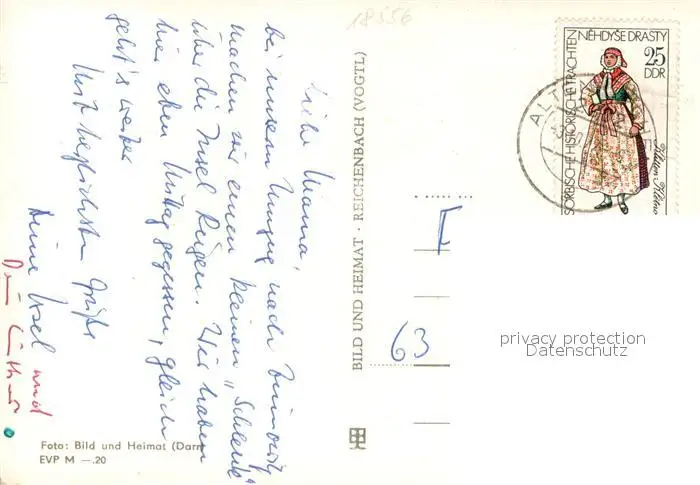 Liebe Mama,
bei unserem Umzug nach Zinnowitz
machen wir einen kleinen „Schlenk"
über die Insel Rügen. Wir haben
hier eben Mittag gegessen, gleich
geht's weiter
Mit herzlichsten Grüße
Deine Ursel und
Dein Lothar
Foto: Bild und Heimat (Darr
EVP M —.20
BILD UND HEIMAT · REICHENBACH (VOGTL)
18356
63
NĚHDYŠE DRASTY
25
DDR
SORBISCHE HISTORISCHE TRACHTEN
ALT
privacy protection
Datenschutz